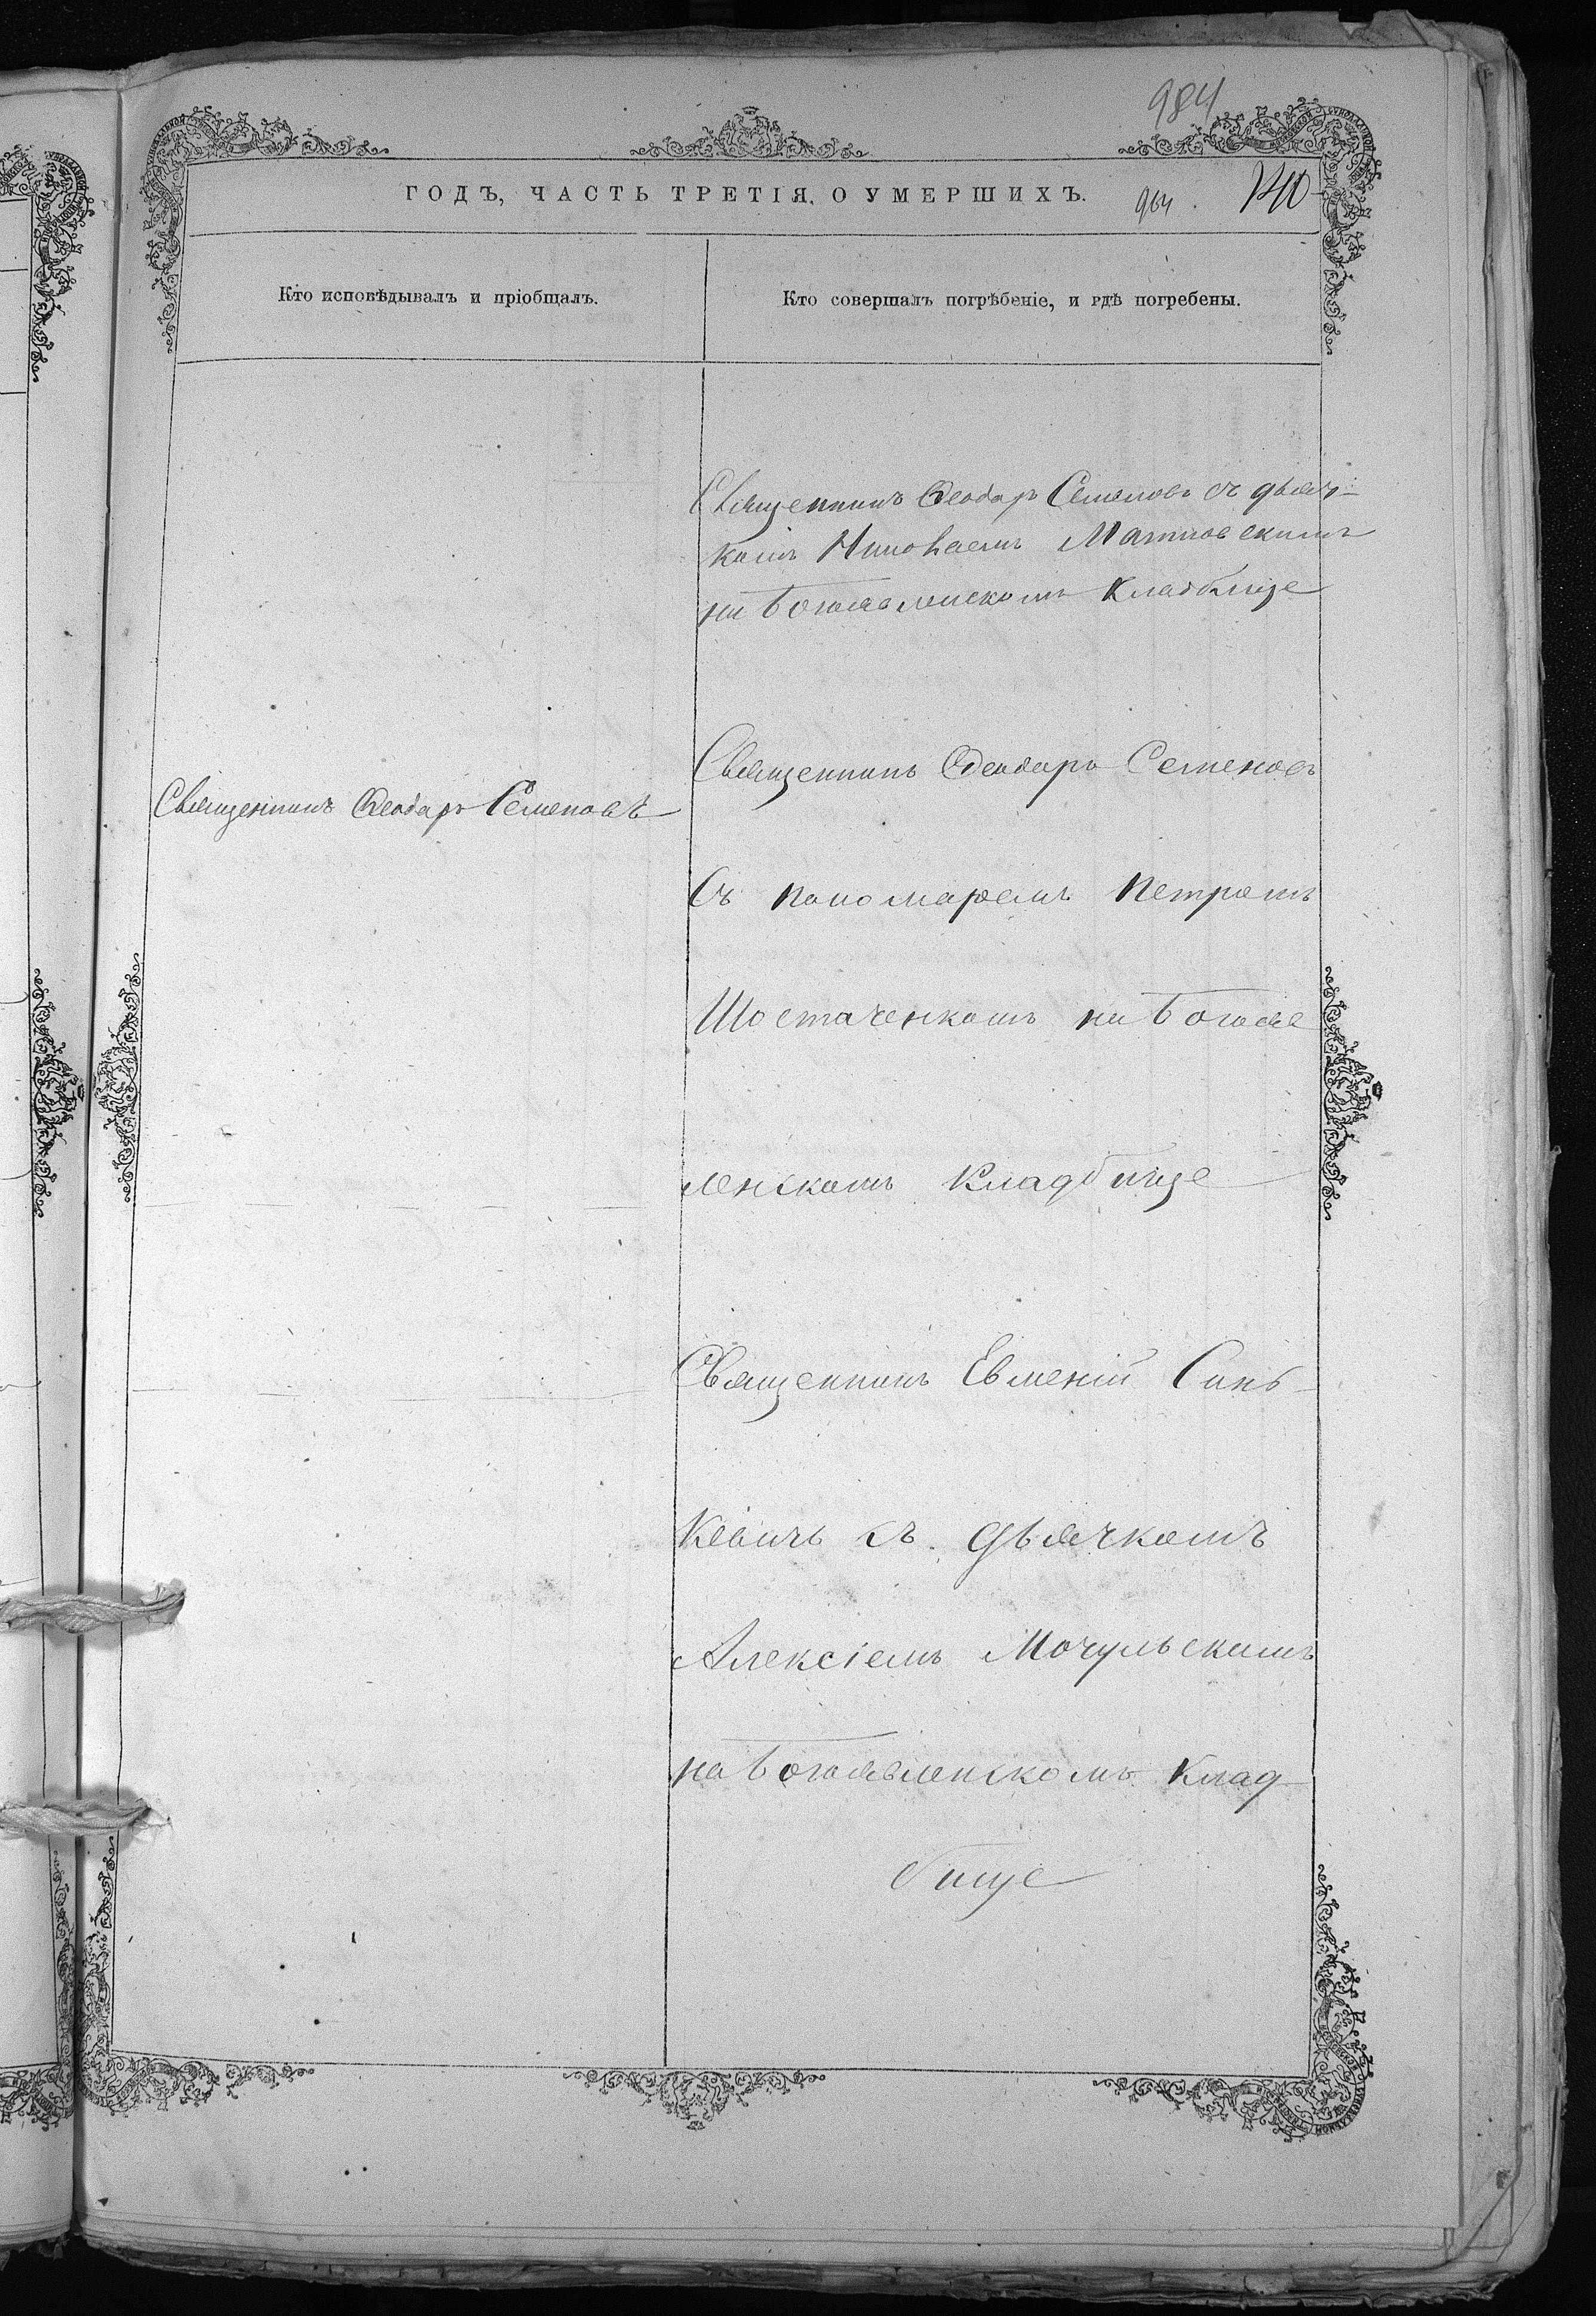 984
ГОДЪ, ЧАСТЬ ТРЕТІЯ, О УМЕРШИХЪ.
964
Кто исповѣдывалъ и пріобщалъ.
Кто совершалъ погрѣбеніе, и гдѣ погребены.
Священникъ Ѳеодоръ Семеновъ съ дьяч-
комъ Николаемъ
на Богоявленскомъ Кладбище
Священникъ Ѳеодоръ Семеновъ
Священникъ Ѳеодоръ Семеновъ
Съ пономаремъ Петромъ
Шостаченкомъ на Богояв
ленскомъ Кладбище
Священникъ Евменій Синь-
кевичъ съ дьячкомъ
Алексіемъ Мочульскимъ
на Богоявленскомъ Клад-
бище